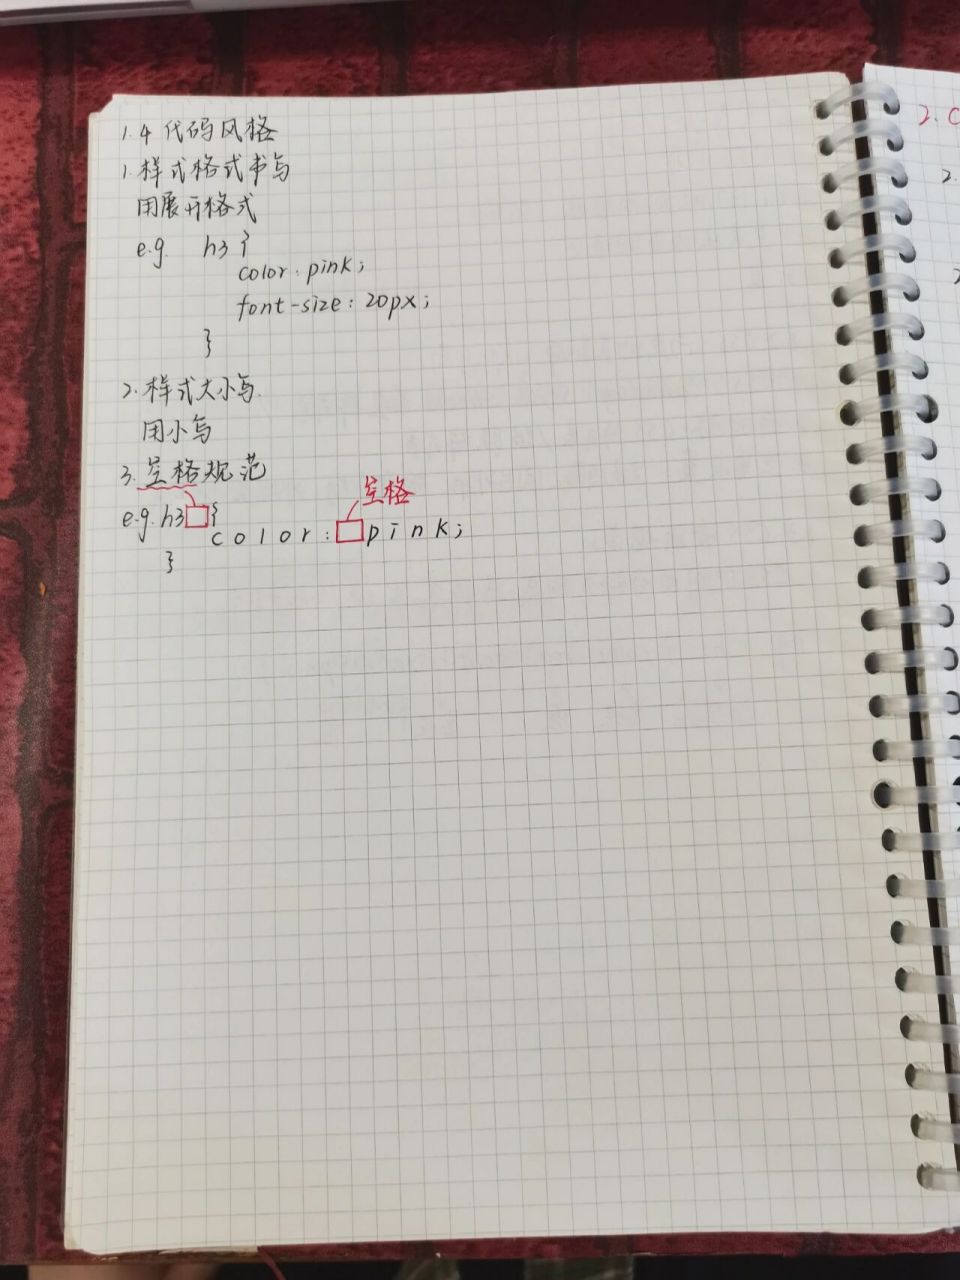 1.4 代码风格
1.样式格式书写
用展开格式
e.g. h3 {
color: pink;
font-size: 20px;
}
2.样式大小写.
用小写
3.空格规范
空格
e.g. h3 {
color: pink;
}
2.C
2.